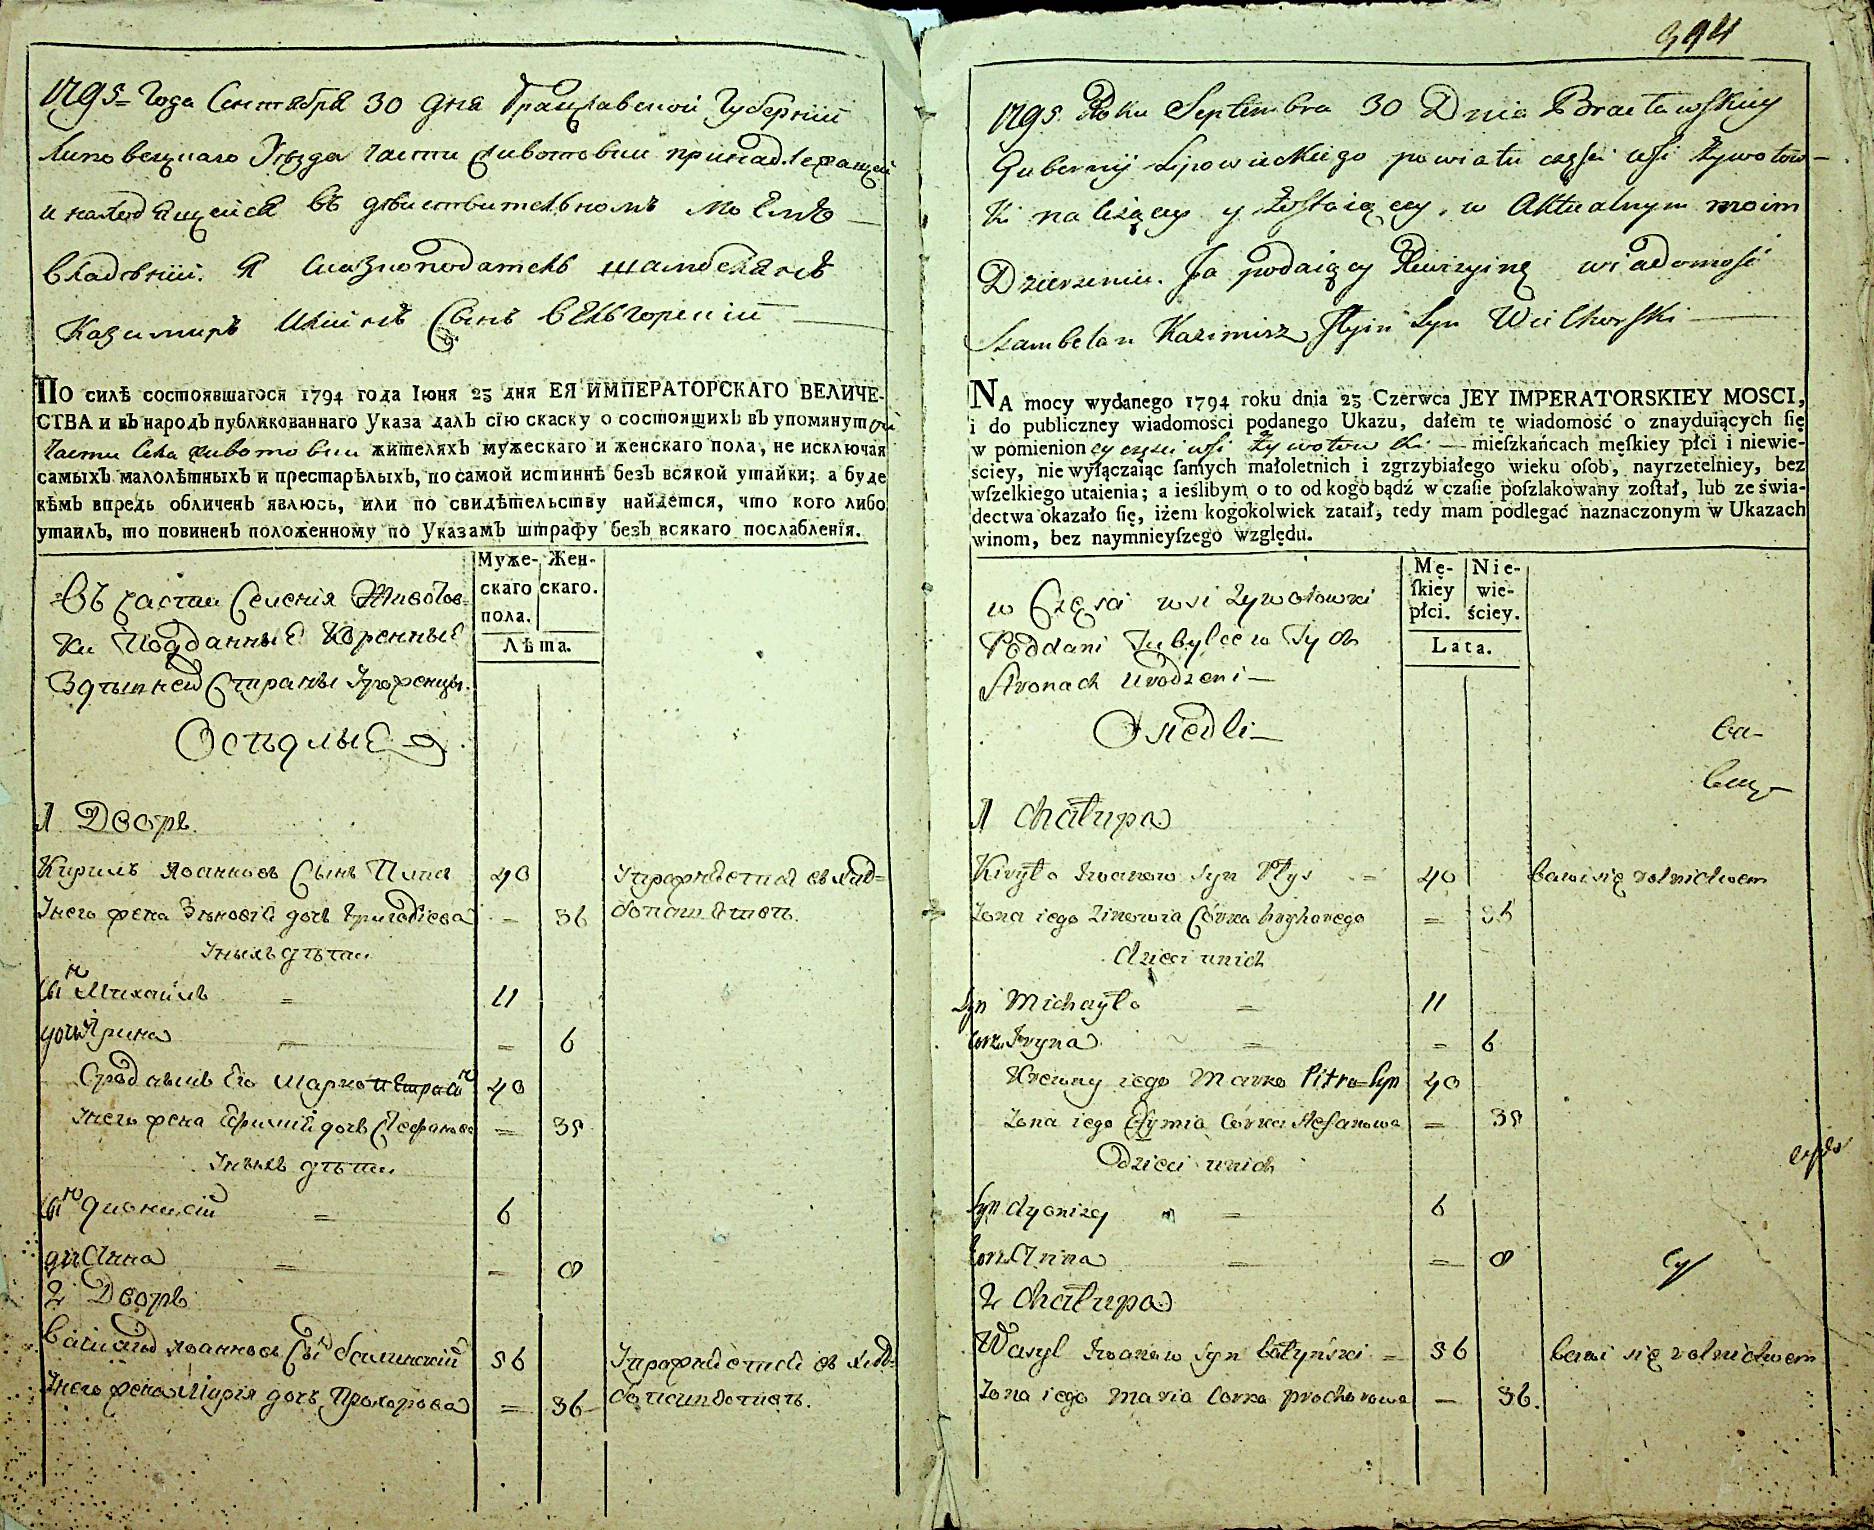 1795 года Сентября 30 дня Брацлавской Губернии
Липовецкаго Уезда части Животовки принадлежащей
и находящейся въ действительномъ моемъ
владении. Я сказкоподатель шамбелянъ
Казимиръ Сынъ Вельгорский
По силѣ состоявшагося 1794 года Іюня 23 дня ЕЯ ИМПЕРАТОРСКАГО ВЕЛИЧЕ-
СТВА и въ народъ публикованнаго Указа далъ сїю скаску о состоящихъ въ упомянутой
части села Животовки жителяхъ мужескаго и женскаго пола, не исключая
самыхъ малолѣтныхъ и престарѣлыхъ, по самой истиннѣ безъ всякой утайки; а буде
кѣмъ впредь обличенъ явлюсь, или по свидѣтельству найдется, что кого либо
утаилъ, то повиненъ положенному по Указамъ штрафу безъ всякаго послабленїя.
Муже- Жен-
скаго скаго.
пола.
Лѣта.
Въ части Селения Животов-
ки Подданные Коренные
Здешней Стараны Уроженцы.
Оседлые
1 Дворъ
Кирилъ Иоанновъ Сынъ 40 Упражняется въ хле-
У него жена Зеновія дочь Григоріева 36 бопашестве.
У нихъ дети
Сынъ Михаилъ 11
дочь Ирина 6
Сродникъ Его Марко Петровъ сын 40
У него жена Ефимия дочь Стефанова 35
У нихъ дети
Сынъ Дионисий 6
дочь Анна 8
2 Дворъ
Василий Иоанновъ Сынъ 36 Упражняется въ хле-
У него жена Мария дочь Прохорова 36 бопашестве.
394
1795 Roku Septembra 30 Dnia Bracławskiey
Gubernij Lipowieckiego powiatu części wsi Żywotow-
ki należącey y zostaiącey w Aktualnym moim
Dzierżeniu. Ja podaiący Rewizyinę wiadomość
Szambelan Kazimierz Syn Wielhorski
NA mocy wydanego 1794 roku dnia 23 Czerwca JEY IMPERATORSKIEY MOSCI,
i do publiczney wiadomości podanego Ukazu, dałem tę wiadomość o znayduiących ſię
w pomienioney części wsi Żywotowki mieſzkańcach męſkiey płci i niewie-
ściey, nie wyłączaiąc ſamych małoletnich i zgrzybiałego wieku oſob, nayrzetelniey, bez
wſzelkiego utaienia; a ieślibym o to od kogo bądź w czaſie poſzlakowany zoſtał, lub ze świa-
dectwa okazało ſię, iżem kogokolwiek zataił, tedy mam podlegać naznaczonym w Ukazach
winom, bez naymnieyſzego względu.
Mę- Nie-
ſkiey wie-
płci. ściey.
Lata.
w Części wsi Zywotowki
Poddani Tubylce w Tych
Stronach Urodzeni
Osiedli
1 Chałupa
Kiryło Iwanow Syn 40 bawi się rolnictwem
Zona iego Zinowia Córka 36
dzieci unich
Syn Michayło 11
Corka Iryna 6
Krewny iego Marko Pitra Syn 40
Zona iego Efymia Córka Stefanowa 35
Dzieci unich
Syn dyonizy 6
Corka Anna 8
2 Chałupa
Wasyl Iwanow Syn bałyński 36 bawi się rolnictwem
Zona iego Maria Corka prochorowa 36.